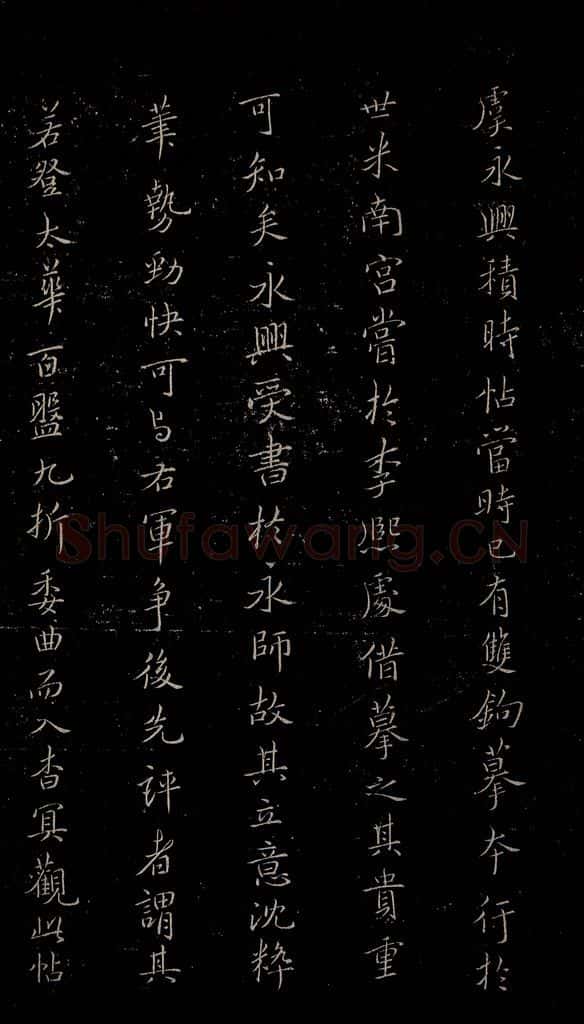 虞永興積時帖當時已有雙鉤摹本行於
世米南宮嘗於李熙處借摹之其貴重
可知矣永興受書於永師故其立意沈粹
筆勢勁快可与右軍争後先評者謂其
若登太華百盤九折委曲而入杳冥觀此帖
Shufawang.CN